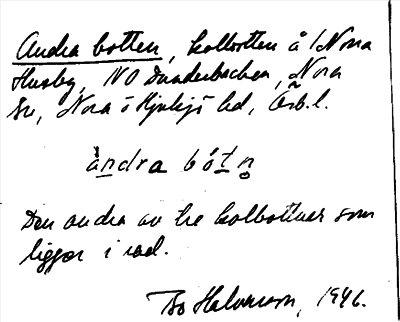 Andra botten, kolbotten å 1 Nora
Husby, NO Dunderbacken, Nora
sn, Nora o Hjulsjö hd, Örb. l.
àndra bótn̥
Den andra av tre kolbottnar som
ligger i rad.
Bo Halvarson, 1946.